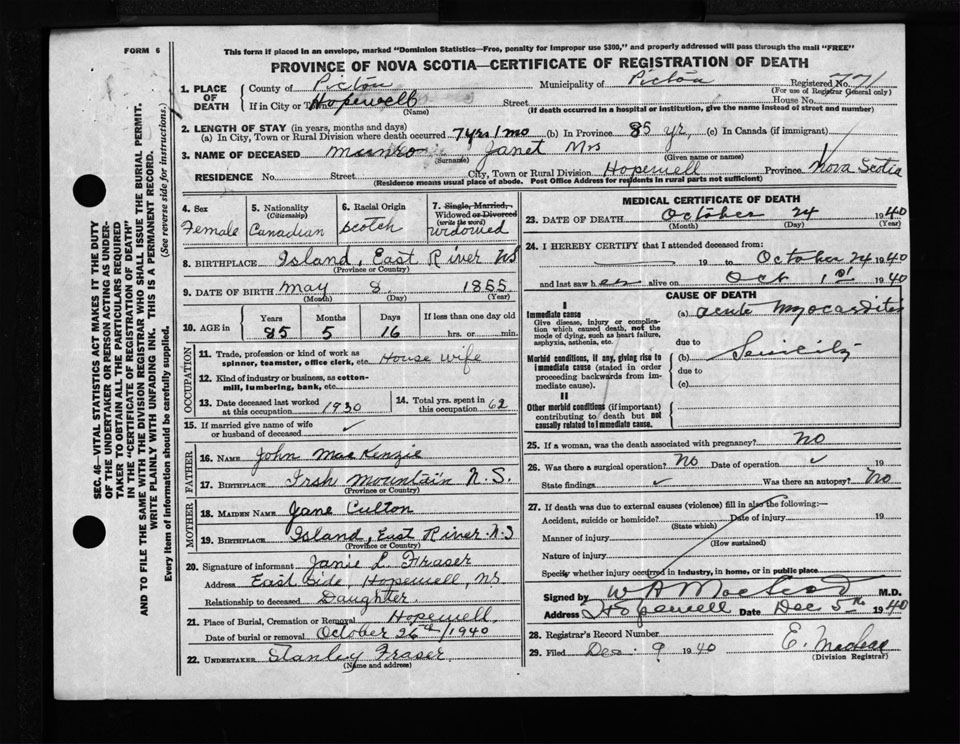 FORM 6
This form if placed in an envelope, marked "Dominion Statistics—Free, penalty for improper use $300," and properly addressed will pass through the mail "FREE"
PROVINCE OF NOVA SCOTIA—CERTIFICATE OF REGISTRATION OF DEATH
1. PLACE OF DEATH
County of Pictou Municipality of Pictou Registered No. 771
(For use of Registrar General only)
If in City or Town Hopewell Street House No.
(Name) (If death occurred in a hospital or institution, give the name instead of street and number)
2. LENGTH OF STAY (in years, months and days)
(a) In City, Town or Rural Division where death occurred 7 yrs 1 mo (b) In Province 85 yr, (c) In Canada (if immigrant)
3. NAME OF DECEASED Munro Janet Mrs
(Surname) (Given name or names)
RESIDENCE No. Street City, Town or Rural Division Hopewell Province Nova Scotia
(Residence means usual place of abode. Post Office Address for residents in rural parts not sufficient)
4. Sex Female
5. Nationality (Citizenship) Canadian
6. Racial Origin Scotch
7. Single, Married, Widowed or Divorced (write the word) widowed
8. BIRTHPLACE Island, East River NS
(Province or Country)
9. DATE OF BIRTH May 8 1855
(Month) (Day) (Year)
10. AGE in Years Months Days If less than one day old
85 5 16 hrs. or min.
OCCUPATION
11. Trade, profession or kind of work as spinner, teamster, office clerk, etc. House wife
12. Kind of industry or business, as cotton-mill, lumbering, bank, etc.
13. Date deceased last worked at this occupation 1930
14. Total yrs. spent in this occupation 62
15. If married give name of wife or husband of deceased ✓
FATHER
16. NAME John MacKenzie
17. BIRTHPLACE Irsh Mountain N.S.
(Province or Country)
MOTHER
18. MAIDEN NAME Jane Culton
19. BIRTHPLACE Island, East River N.S
(Province or Country)
20. Signature of informant Janie L. Fraser
Address East Side, Hopewell, NS
Relationship to deceased Daughter
21. Place of Burial, Cremation or Removal Hopewell
Date of burial or removal October 26th 1940
22. UNDERTAKER Stanley Fraser
(Name and address)
MEDICAL CERTIFICATE OF DEATH
23. DATE OF DEATH October 24 1940
(Month) (Day) (Year)
24. I HEREBY CERTIFY that I attended deceased from:
19 to October 24 1940
and last saw her alive on Oct 1st 1940
CAUSE OF DEATH
I
Immediate cause
Give disease, injury or complication which caused death, not the mode of dying, such as heart failure, asphyxia, asthenia, etc.
(a) acute Myocarditis
due to
Morbid conditions, if any, giving rise to immediate cause (stated in order proceeding backwards from immediate cause).
(b) Senility
due to
(c)
II
Other morbid conditions (if important) contributing to death but not causally related to immediate cause.
25. If a woman, was the death associated with pregnancy? No
26. Was there a surgical operation? No Date of operation ✓ 19
State findings ✓ Was there an autopsy? No
27. If death was due to external causes (violence) fill in also the following:
Accident, suicide or homicide? Date of injury 19
(State which)
Manner of injury
(How sustained)
Nature of injury
Specify whether injury occurred in industry, in home, or in public place
Signed by W A MacLeod M.D.
Address Hopewell Date Dec 5th 1940
28. Registrar's Record Number
29. Filed Dec. 9 1940 E. MacLeod
(Division Registrar)
SEC. 46—VITAL STATISTICS ACT MAKES IT THE DUTY
OF THE UNDERTAKER OR PERSON ACTING AS UNDERTAKER
TO OBTAIN ALL THE PARTICULARS REQUIRED
IN THE "CERTIFICATE OF REGISTRATION OF DEATH"
AND TO FILE THE SAME WITH THE DIVISION REGISTRAR WHO SHALL ISSUE THE BURIAL PERMIT.
WRITE PLAINLY WITH UNFADING INK. THIS IS A PERMANENT RECORD.
Every item of information should be carefully supplied. (See reverse side for instructions.)